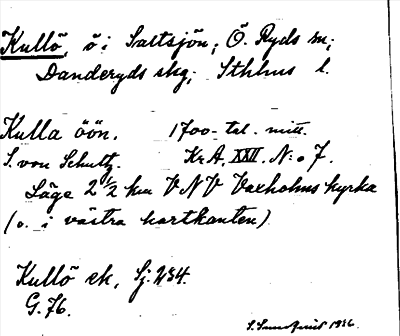 Kullö, ö i Saltsjön; Ö. Ryds sn;
Danderyds skg; Sthlms l.
Kulla öön. 1700-tal. mitt.
S. von Schultz. Kr. A. XXII. N:o 7.
Läge 2 1/2 km VNV Vaxholms kyrka
(ö. i västra kartkanten)
Kullö ek, Sj. 234.
G. 76.
1936